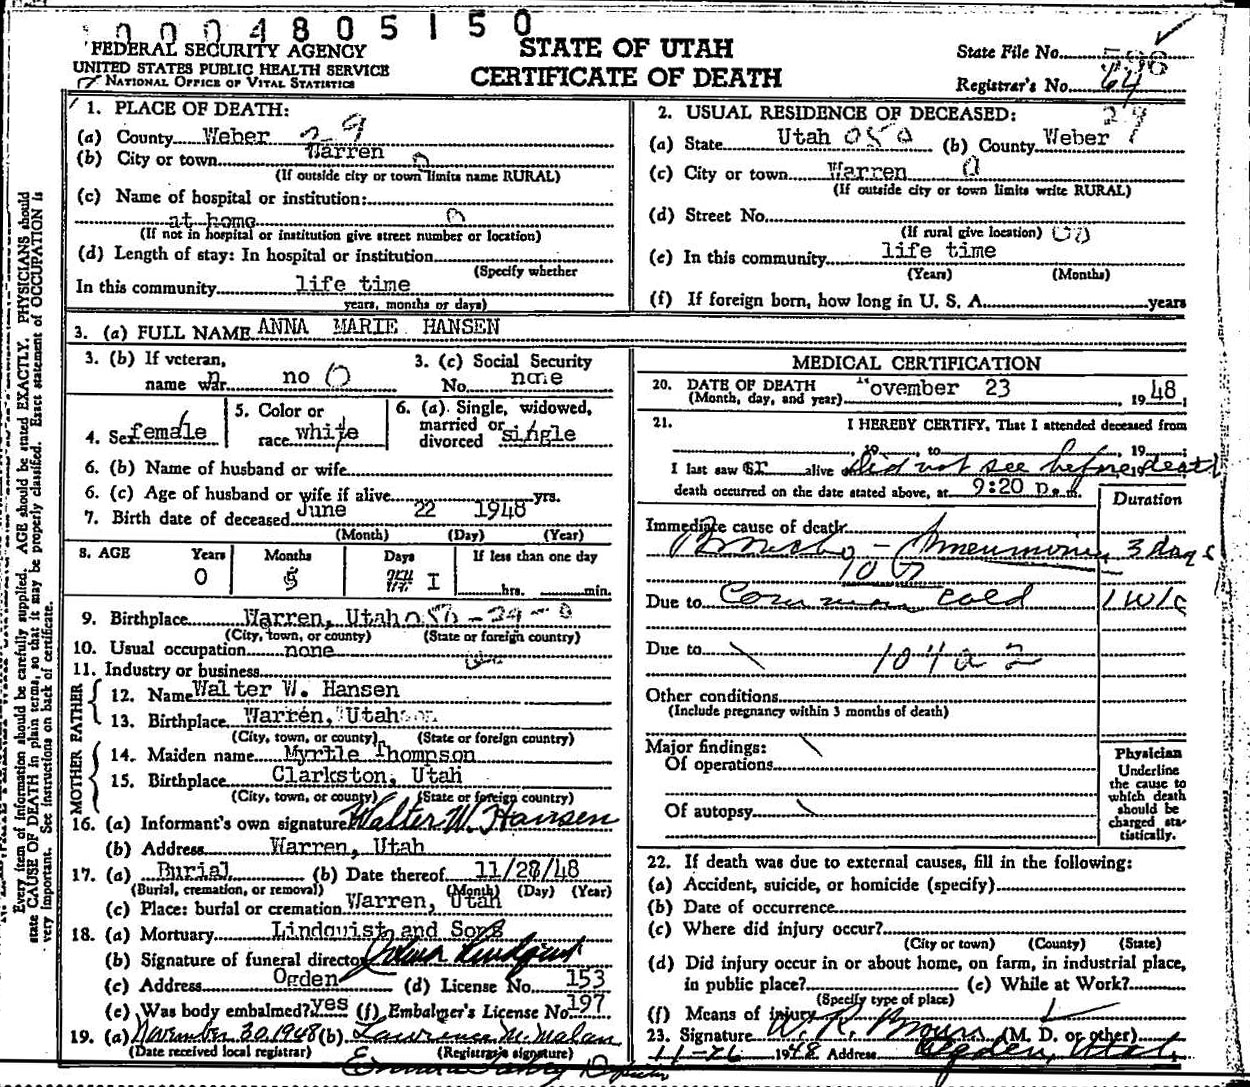 0004805150
FEDERAL SECURITY AGENCY
UNITED STATES PUBLIC HEALTH SERVICE
NATIONAL OFFICE OF VITAL STATISTICS
STATE OF UTAH
CERTIFICATE OF DEATH
State File No.
Registrar's No. 64
1. PLACE OF DEATH:
(a) County Weber 29
(b) City or town Warren 0
(If outside city or town limits name RURAL)
(c) Name of hospital or institution:
at home 0
(If not in hospital or institution give street number or location)
(d) Length of stay: In hospital or institution
(Specify whether
In this community life time
years, months or days)
2. USUAL RESIDENCE OF DECEASED: 29
(a) State Utah 050 (b) County Weber
(c) City or town Warren 0
(If outside city or town limits write RURAL)
(d) Street No.
(If rural give location) 00
(e) In this community life time
(Years) (Months)
(f) If foreign born, how long in U. S. A. years
3. (a) FULL NAME ANNA MARIE HANSEN
3. (b) If veteran,
name war n no 0
3. (c) Social Security
No. none
4. Sex female
5. Color or
race white
6. (a) Single, widowed,
married or
divorced single
6. (b) Name of husband or wife
6. (c) Age of husband or wife if alive yrs.
7. Birth date of deceased June 22 1948
(Month) (Day) (Year)
8. AGE Years Months Days If less than one day
0 5 1 hrs. min.
9. Birthplace Warren, Utah 050-29-0
(City, town, or county) (State or foreign country)
10. Usual occupation none
11. Industry or business
FATHER
12. Name Walter W. Hansen
13. Birthplace Warren, Utah
(City, town, or county) (State or foreign country)
MOTHER
14. Maiden name Myrtle Thompson
15. Birthplace Clarkston, Utah
(City, town, or county) (State or foreign country)
16. (a) Informant's own signature Walter W. Hansen
(b) Address Warren, Utah
17. (a) Burial (b) Date thereof 11/28/48
(Burial, cremation, or removal) (Month) (Day) (Year)
(c) Place: burial or cremation Warren, Utah
18. (a) Mortuary Lindquist and Sons
(b) Signature of funeral director Lindquist
(c) Address Ogden (d) License No. 153
(e) Was body embalmed? yes (f) Embalmer's License No. 197
19. (a) November 30, 1948 (b) Lawrence M. Malan
(Date received local registrar) (Registrar's signature)
MEDICAL CERTIFICATION
20. DATE OF DEATH
(Month, day, and year) November 23, 1948;
21. I HEREBY CERTIFY, That I attended deceased from
, 19 , to , 19
I last saw er alive on did not see before death
death occurred on the date stated above, at 9:20 p.m.
Duration
Immediate cause of death
Broncho-Pneumonia 3 days
107
Due to Common cold 1 wk
Due to 104 a 2
Other conditions
(Include pregnancy within 3 months of death)
Major findings:
Of operations
Of autopsy
Physician
Underline
the cause to
which death
should be
charged sta-
tistically.
22. If death was due to external causes, fill in the following:
(a) Accident, suicide, or homicide (specify)
(b) Date of occurrence
(c) Where did injury occur?
(City or town) (County) (State)
(d) Did injury occur in or about home, on farm, in industrial place,
in public place? (e) While at Work?
(Specify type of place)
(f) Means of injury
23. Signature W. R. (M. D. or other)
11-26 1948 Address Ogden, Utah
Every item of information should be carefully supplied. AGE should be stated EXACTLY. PHYSICIANS should
state CAUSE OF DEATH in plain terms, so that it may be properly classified. Exact statement of OCCUPATION is
very important. See instructions on back of certificate.